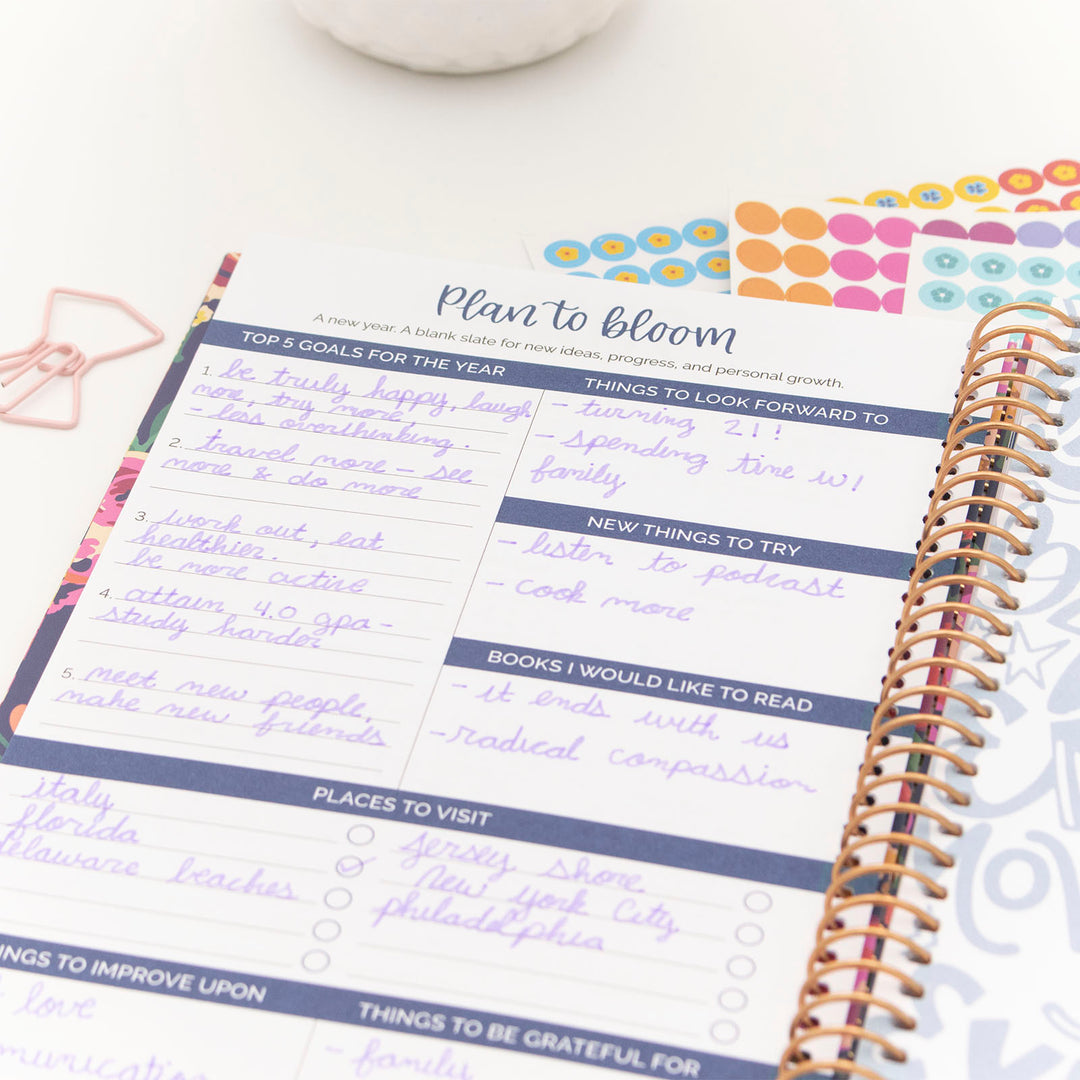 Plan to bloom
A new year. A blank slate for new ideas, progress, and personal growth.
TOP 5 GOALS FOR THE YEAR
1. be truly happy, laugh
more, try more,
- less overthinking.
2. travel more - see
more & do more
3. work out, eat
healthier.
be more active
4. attain 4.0 gpa -
study harder
5. meet new people,
make new friends
THINGS TO LOOK FORWARD TO
- turning 21!!
- spending time w/
family
NEW THINGS TO TRY
- listen to podcast
- cook more
BOOKS I WOULD LIKE TO READ
- it ends with us
- radical compassion
PLACES TO VISIT
italy
florida
delaware beaches
jersey shore
New York City
philadelphia
NGS TO IMPROVE UPON
love
THINGS TO BE GRATEFUL FOR
- family